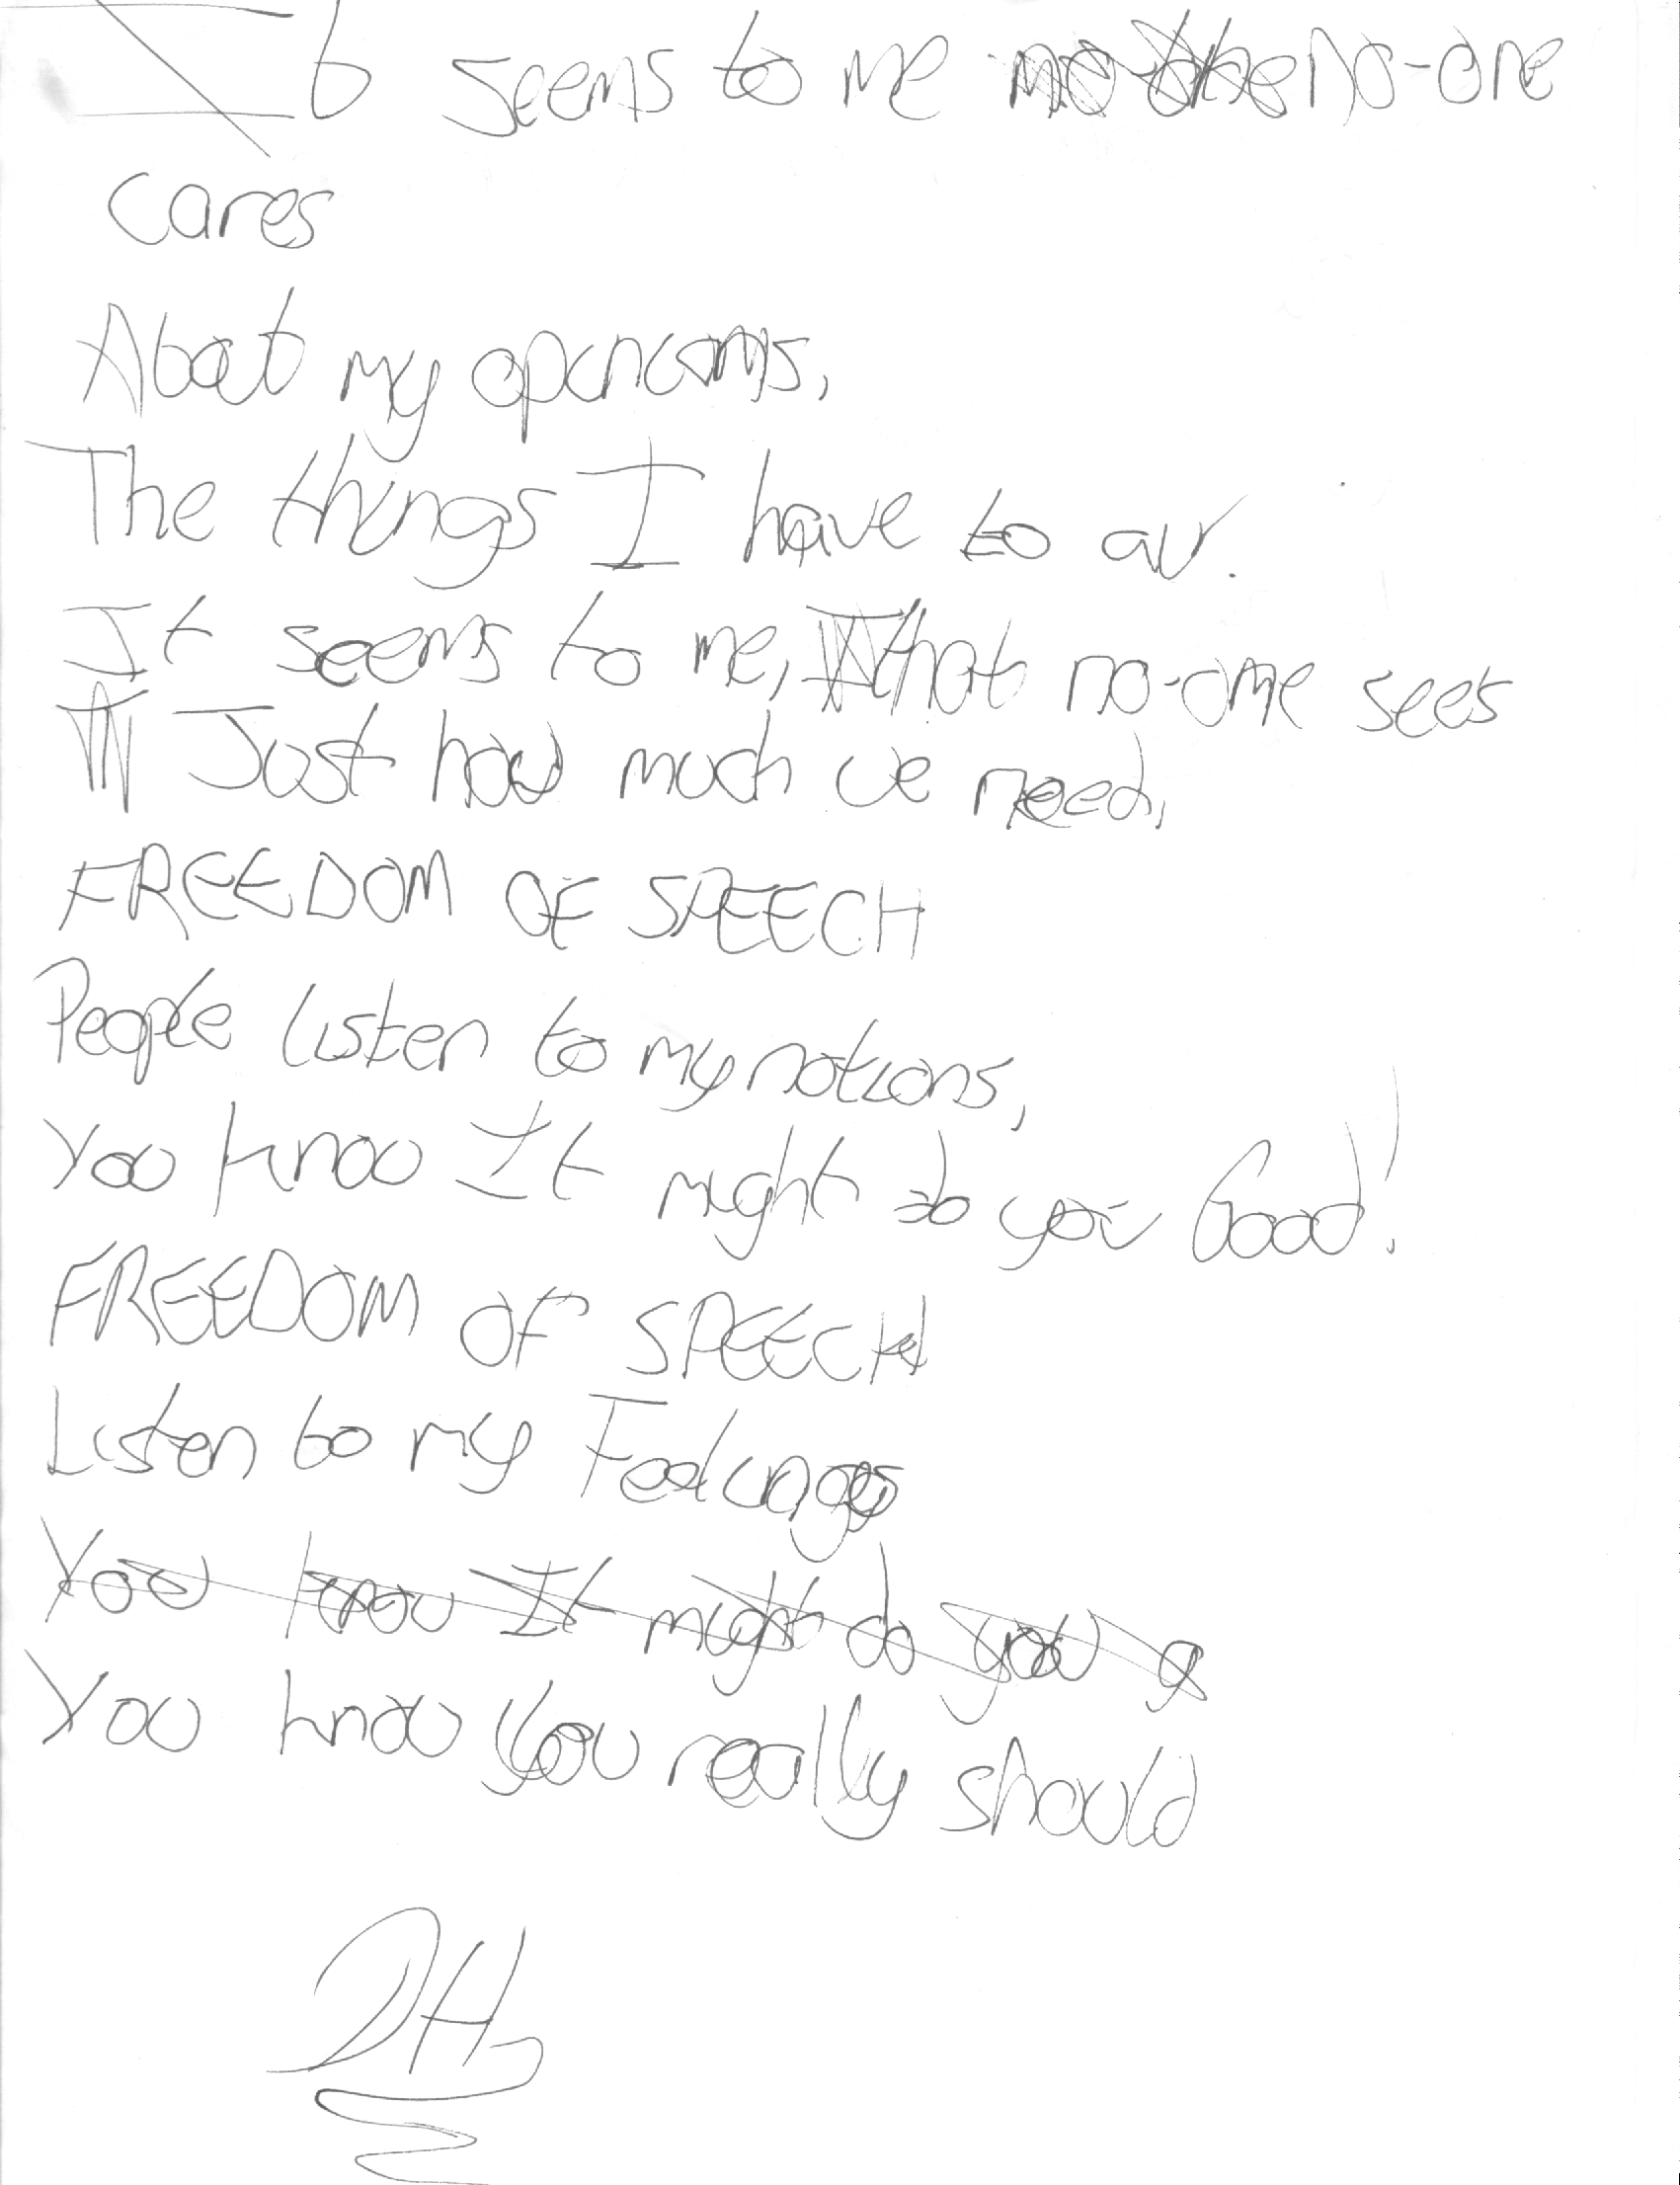 It seems to me no-one
cares
About my openions,
The things I have to air.
It seems to me, that no-one sees
Just how much we need,
FREEDOM OF SPEECH
People listen to my notions,
You know It might do you Good!
FREEDOM OF SPEECH
Listen to my Feelings
You know It might do you g
You know You really should
DH